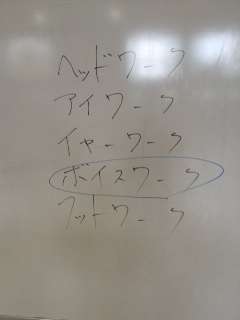 ヘッドワーク
アイワーク
イヤーワーク
ボイスワーク
フットワーク